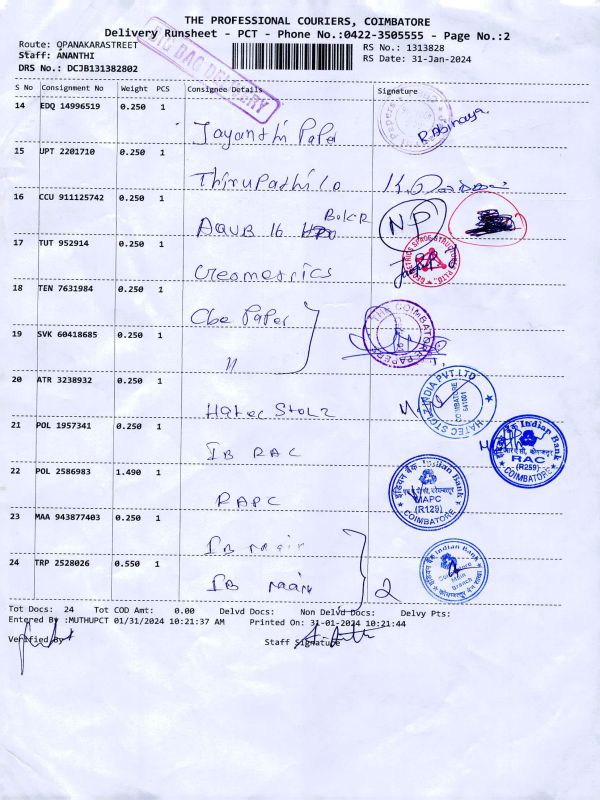 THE PROFESSIONAL COURIERS, COIMBATORE
Delivery Runsheet - PCT - Phone No.:0422-3505555 - Page No.:2
Route: OPANAKARASTREET
RS No.: 1313828
Staff: ANANTHI
RS Date: 31-Jan-2024
DRS No.: DCJB131382802
S No Consignment No Weight PCS Consignee Details Signature
14 EDQ 14996519 0.250 1
Jayanthi Paper
R.Abinaya
15 UPT 2201710 0.250 1
Thirupathi
16 CCU 911125742 0.250 1
NP
17 TUT 952914 0.250 1
Geometrics
18 TEN 7631984 0.250 1
Cbe Paper
THE COIMBATORE PAPER
19 SVK 60418685 0.250 1
"
20 ATR 3238932 0.250 1
Hatec Stolz
HATEC STOLZ INDIA PVT.LTD
COIMBATORE
641001
21 POL 1957341 0.250 1
IB RAC
इंडियन बैंक Indian Bank
RAC
(R259)
COIMBATORE
22 POL 2586983 1.490 1
RAPC
इंडियन बैंक Indian Bank
MAPC
(R129)
COIMBATORE
23 MAA 943877403 0.250 1
IB main
24 TRP 2528026 0.550 1
IB main
2
इंडियन बैंक Indian Bank
Coimbatore
Main
Branch
Tot Docs: 24 Tot COD Amt: 0.00 Delvd Docs: Non Delvd Docs: Delvy Pts:
Entered By :MUTHUPCT 01/31/2024 10:21:37 AM Printed On: 31-01-2024 10:21:44
Verified By
Staff Signature